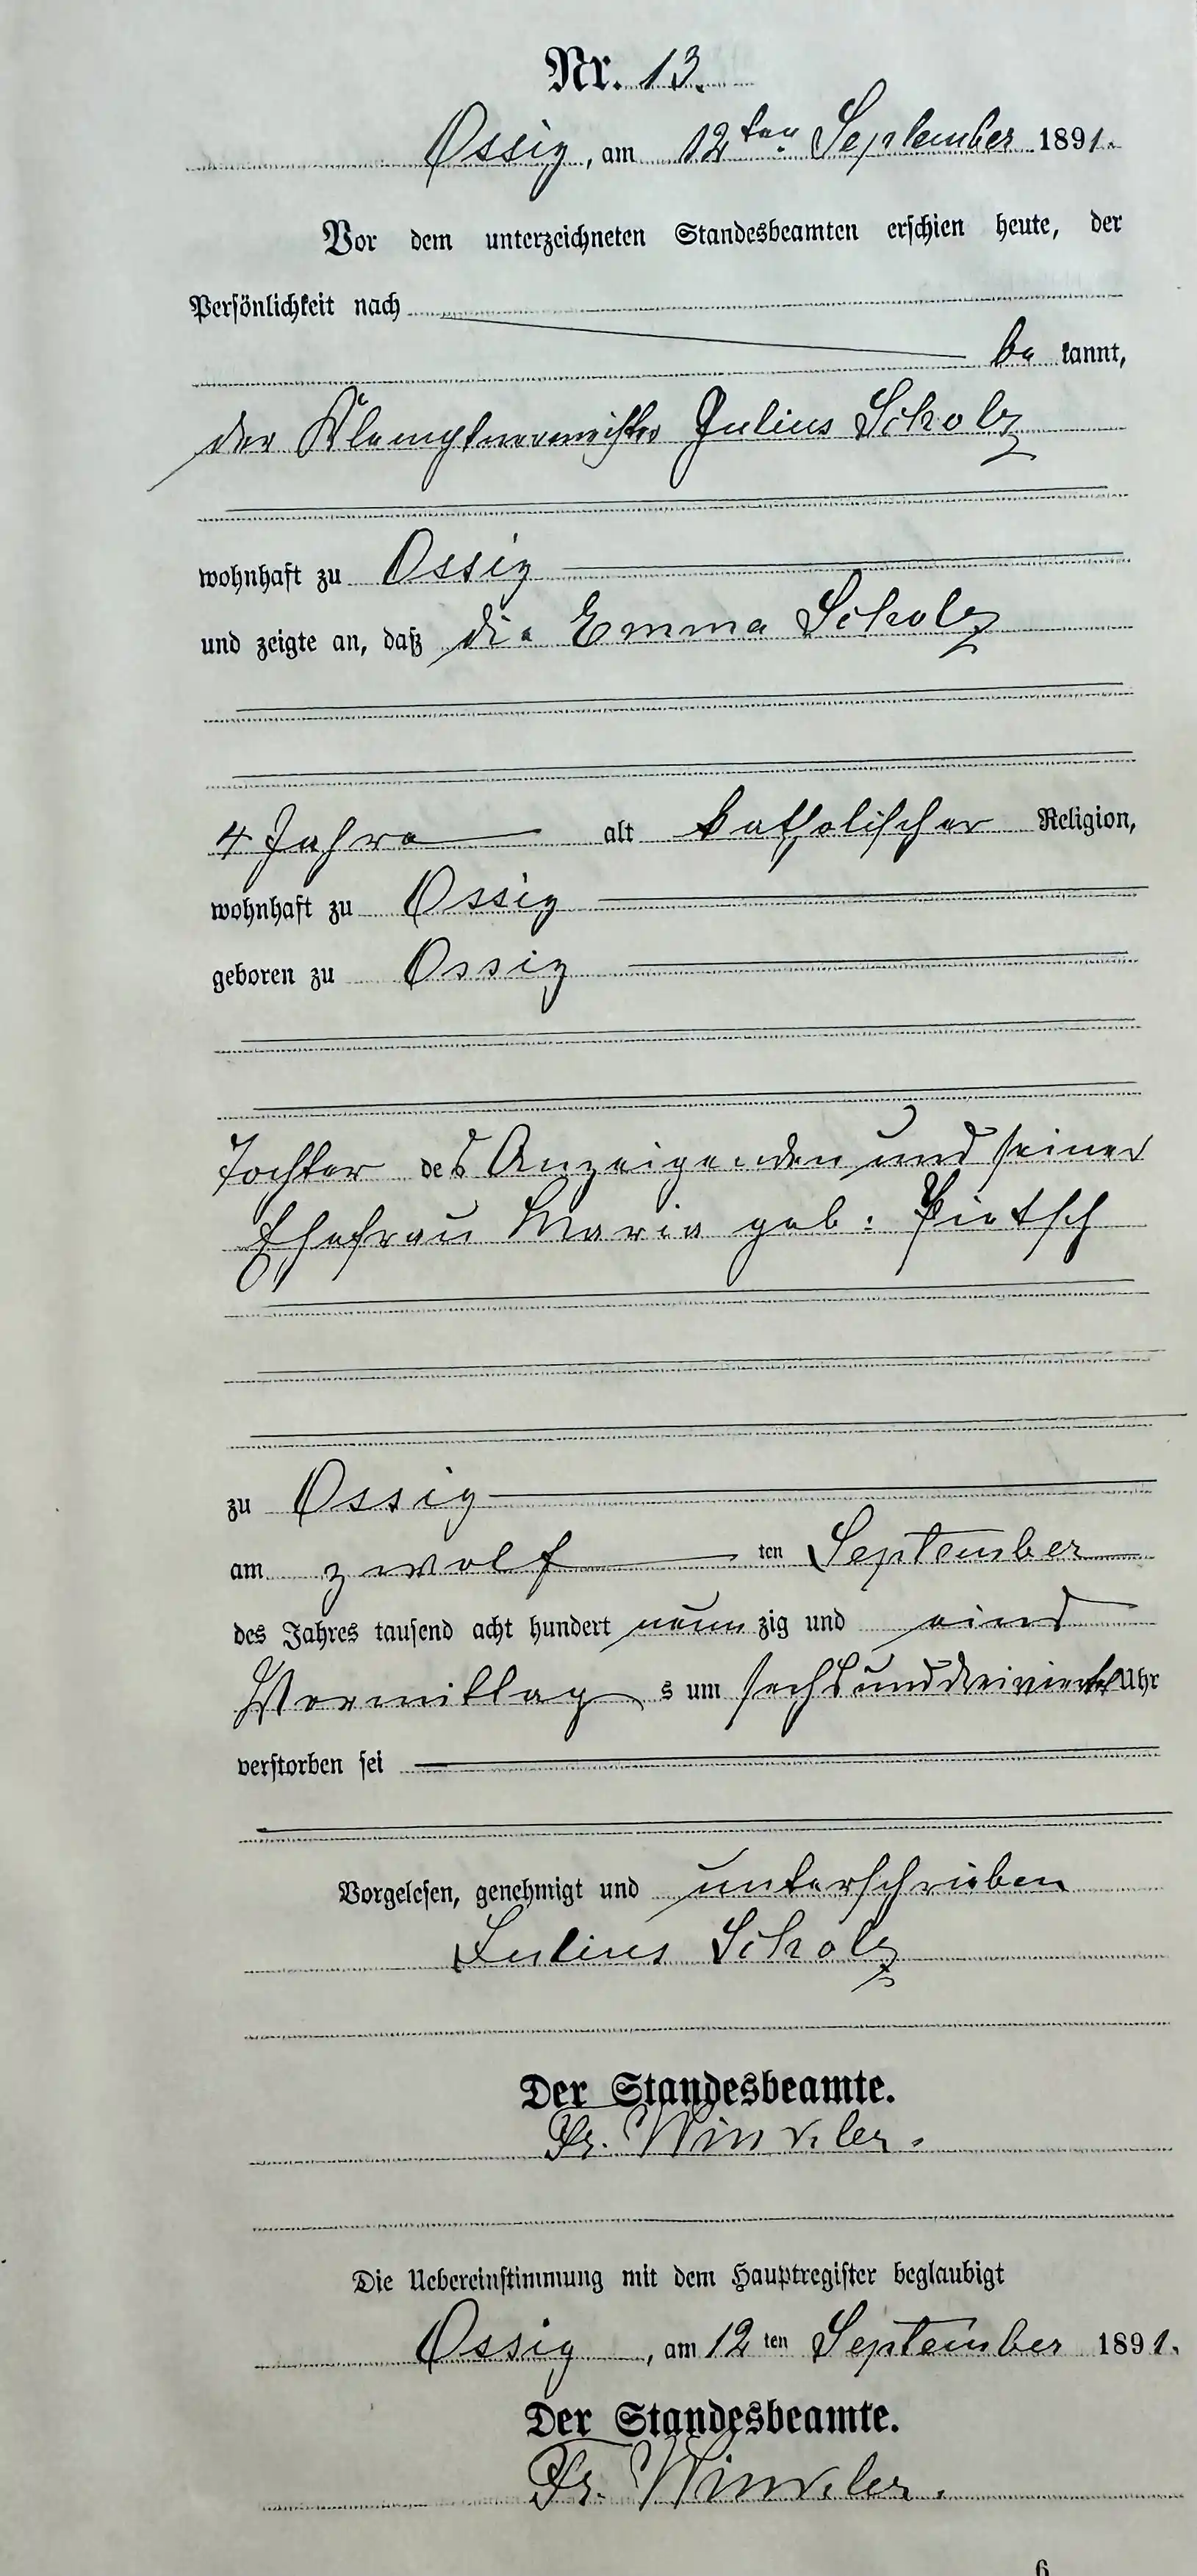 Nr. 13.
Ossig, am 12ten September 1891.
Vor dem unterzeichneten Standesbeamten erschien heute, der
Persönlichkeit nach
be kannt,
der Klempnermeister Julius Scholz
wohnhaft zu Ossig
und zeigte an, daß die Emma Scholz
4 Jahre alt katholischer Religion,
wohnhaft zu Ossig
geboren zu Ossig
Tochter des Anzeigenden und seiner
Ehefrau Maria geb. Pietsch
zu Ossig
am zwölf ten September
des Jahres tausend acht hundert neun zig und eins
Vormittag s um sechs und dreiviertel Uhr
verstorben sei
Vorgelesen, genehmigt und unterschrieben
Julius Scholz
Der Standesbeamte.
Fr. Winkler.
Die Uebereinstimmung mit dem Hauptregister beglaubigt
Ossig, am 12 ten September 1891.
Der Standesbeamte.
Fr. Winkler.
6